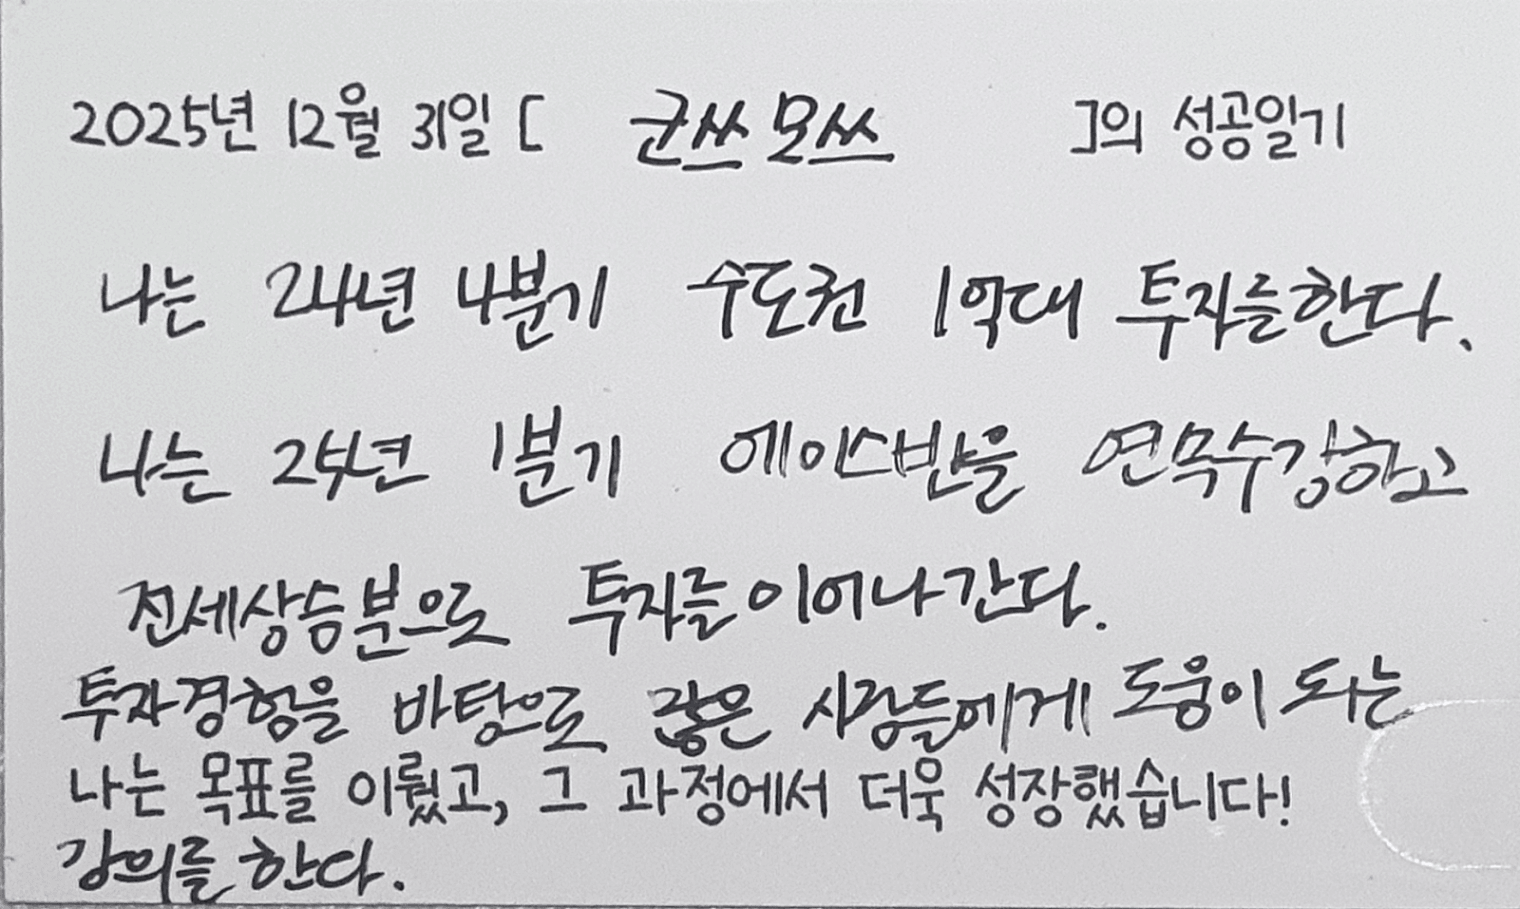 2025년 12월 31일 [ 군쓰모쓰 ]의 성공일기
나는 24년 4분기 수도권 1억대 투자를한다.
나는 25년 1분기 에이스반을 연속수강하고
전세상승분으로 투자를이어나간다.
투자경험을 바탕으로 많은 사람들에게 도움이 되는
나는 목표를 이뤘고, 그 과정에서 더욱 성장했습니다!
강의를 한다.